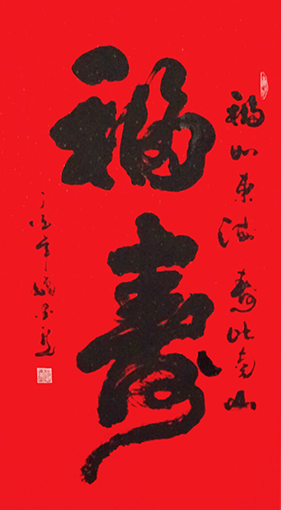 福如東海 壽比南山
福壽